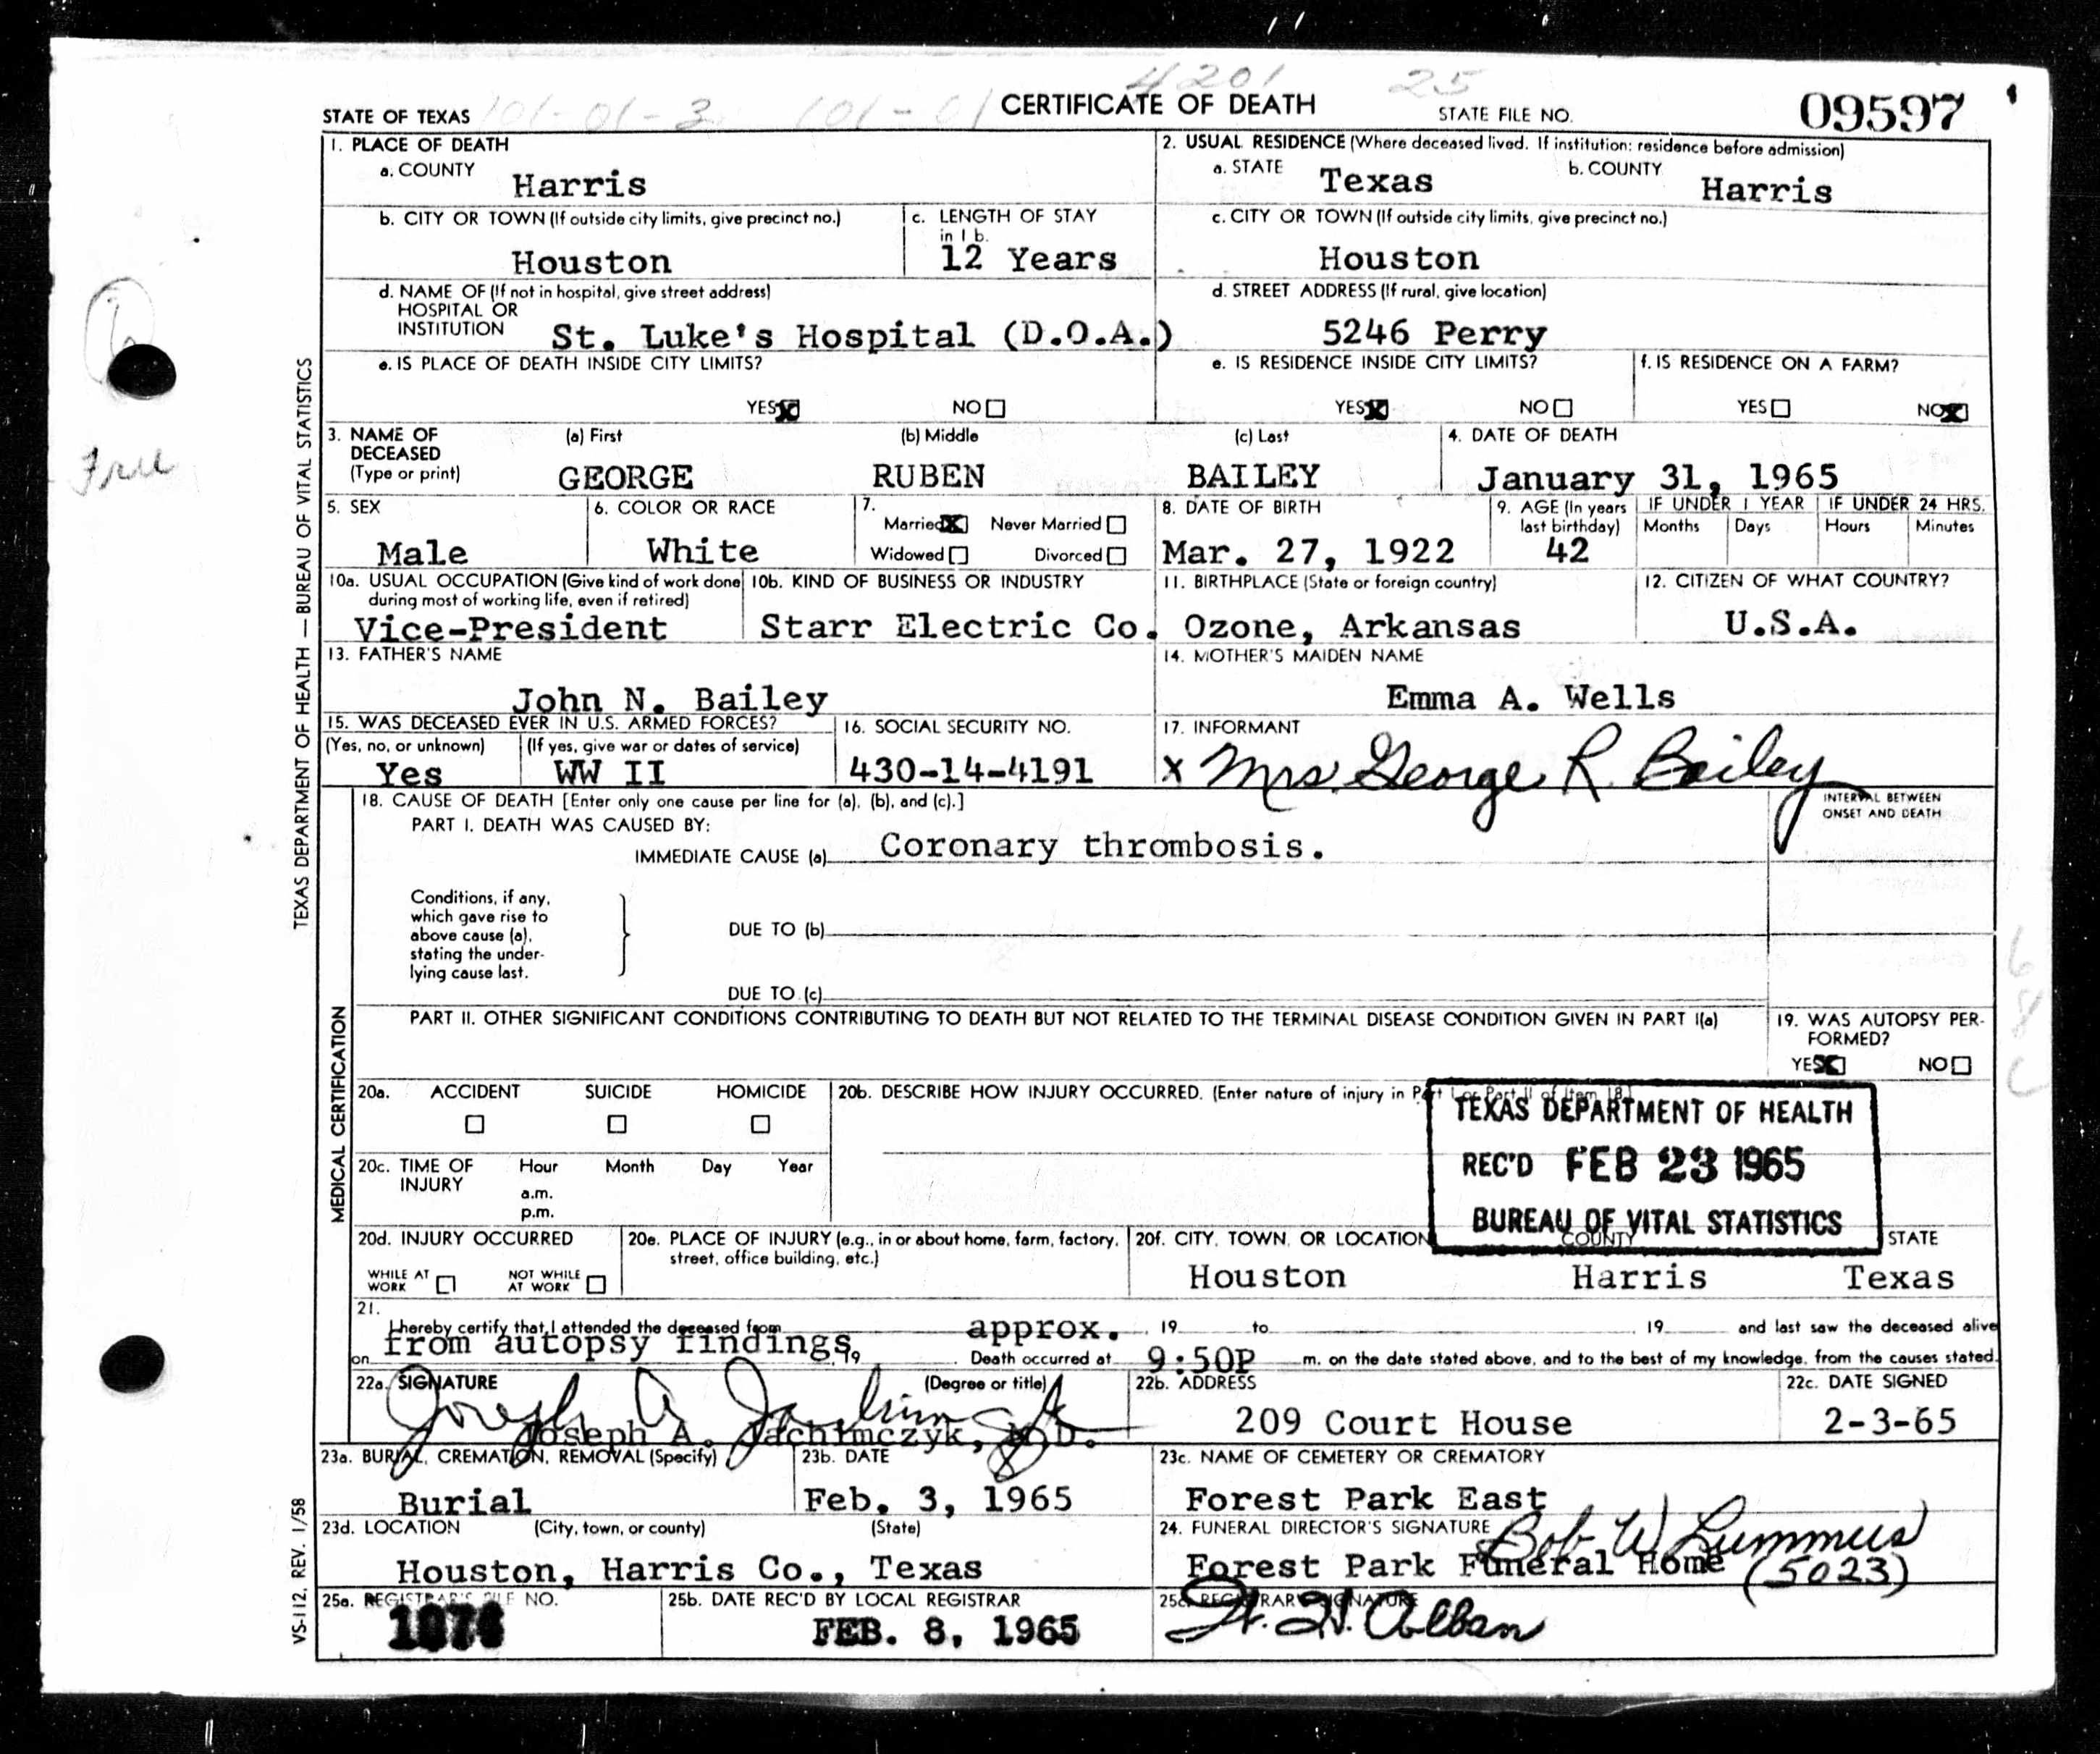 4201 25
STATE OF TEXAS 101-01-3 101-01 CERTIFICATE OF DEATH STATE FILE NO. 09597
1. PLACE OF DEATH
a. COUNTY Harris
2. USUAL RESIDENCE (Where deceased lived. If institution: residence before admission)
a. STATE Texas b. COUNTY Harris
b. CITY OR TOWN (If outside city limits, give precinct no.) Houston
c. LENGTH OF STAY in 1 b. 12 Years
c. CITY OR TOWN (If outside city limits, give precinct no.) Houston
d. NAME OF (If not in hospital, give street address)
HOSPITAL OR
INSTITUTION St. Luke's Hospital (D.O.A.)
d. STREET ADDRESS (If rural, give location)
5246 Perry
e. IS PLACE OF DEATH INSIDE CITY LIMITS?
YES X NO
e. IS RESIDENCE INSIDE CITY LIMITS?
YES X NO
f. IS RESIDENCE ON A FARM?
YES NO X
Free
TEXAS DEPARTMENT OF HEALTH — BUREAU OF VITAL STATISTICS
3. NAME OF DECEASED (Type or print)
(a) First (b) Middle (c) Last
GEORGE RUBEN BAILEY
4. DATE OF DEATH
January 31, 1965
5. SEX
Male
6. COLOR OR RACE
White
7.
Married X Never Married
Widowed Divorced
8. DATE OF BIRTH
Mar. 27, 1922
9. AGE (In years last birthday)
42
IF UNDER 1 YEAR
Months Days
IF UNDER 24 HRS.
Hours Minutes
10a. USUAL OCCUPATION (Give kind of work done
during most of working life, even if retired)
Vice-President
10b. KIND OF BUSINESS OR INDUSTRY
Starr Electric Co.
11. BIRTHPLACE (State or foreign country)
Ozone, Arkansas
12. CITIZEN OF WHAT COUNTRY?
U.S.A.
13. FATHER'S NAME
John N. Bailey
14. MOTHER'S MAIDEN NAME
Emma A. Wells
15. WAS DECEASED EVER IN U.S. ARMED FORCES?
(Yes, no, or unknown) (If yes, give war or dates of service)
Yes WW II
16. SOCIAL SECURITY NO.
430-14-4191
17. INFORMANT
x Mrs. George R. Bailey
MEDICAL CERTIFICATION
18. CAUSE OF DEATH [Enter only one cause per line for (a), (b), and (c).]
INTERVAL BETWEEN
ONSET AND DEATH
PART I. DEATH WAS CAUSED BY:
IMMEDIATE CAUSE (a) Coronary thrombosis.
Conditions, if any,
which gave rise to
above cause (a),
stating the under-
lying cause last.
DUE TO (b)
DUE TO (c)
68C
PART II. OTHER SIGNIFICANT CONDITIONS CONTRIBUTING TO DEATH BUT NOT RELATED TO THE TERMINAL DISEASE CONDITION GIVEN IN PART I(a)
19. WAS AUTOPSY PER-
FORMED?
YES X NO
20a. ACCIDENT SUICIDE HOMICIDE
20b. DESCRIBE HOW INJURY OCCURRED. (Enter nature of injury in Part I or Part II of Item 18)
TEXAS DEPARTMENT OF HEALTH
REC'D FEB 23 1965
BUREAU OF VITAL STATISTICS
20c. TIME OF INJURY
Hour Month Day Year
a.m.
p.m.
20d. INJURY OCCURRED
WHILE AT WORK NOT WHILE AT WORK
20e. PLACE OF INJURY (e.g., in or about home, farm, factory,
street, office building, etc.)
20f. CITY, TOWN, OR LOCATION COUNTY STATE
Houston Harris Texas
21.
I hereby certify that I attended the deceased from approx. , 19 to , 19 and last saw the deceased alive
on from autopsy findings, 19 . Death occurred at 9:50P m. on the date stated above, and to the best of my knowledge, from the causes stated.
22a. SIGNATURE (Degree or title)
Joseph A. Jachimczyk
Joseph A. Jachimczyk, M.D.
22b. ADDRESS
209 Court House
22c. DATE SIGNED
2-3-65
23a. BURIAL, CREMATION, REMOVAL (Specify)
Burial
23b. DATE
Feb. 3, 1965
23c. NAME OF CEMETERY OR CREMATORY
Forest Park East
23d. LOCATION (City, town, or county) (State)
Houston, Harris Co., Texas
24. FUNERAL DIRECTOR'S SIGNATURE Bob W Lummus
Forest Park Funeral Home (5023)
25a. REGISTRAR'S FILE NO.
1074
25b. DATE REC'D BY LOCAL REGISTRAR
FEB. 8, 1965
25c. REGISTRAR'S SIGNATURE
H. H. Alban
VS-112, REV. 1/58